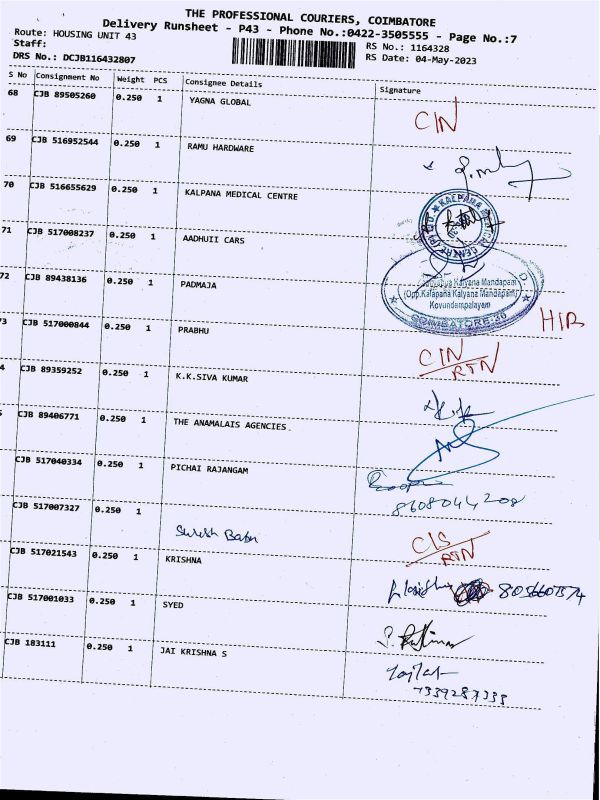 THE PROFESSIONAL COURIERS, COIMBATORE
Delivery Runsheet - P43 - Phone No.:0422-3505555 - Page No.:7
Route: HOUSING UNIT 43 RS No.: 1164328
Staff: RS Date: 04-May-2023
DRS No.: DCJB116432807
S No Consignment No Weight PCS Consignee Details Signature
68 CJB 89505260 0.250 1 YAGNA GLOBAL CIN
69 CJB 516952544 0.250 1 RAMU HARDWARE
70 CJB 516655629 0.250 1 KALPANA MEDICAL CENTRE
KALPANA MEDICAL CENTRE
71 CJB 517008237 0.250 1 AADHUII CARS
72 CJB 89438136 0.250 1 PADMAJA
Kalyana Mandapam
(Opp.Kalapana Kalyana Mandapam)
Kovundampalayam
COIMBATORE-30
3 CJB 517000844 0.250 1 PRABHU CIN
RTN
4 CJB 89359252 0.250 1 K.K.SIVA KUMAR
CJB 89406771 0.250 1 THE ANAMALAIS AGENCIES.
CJB 517040334 0.250 1 PICHAI RAJANGAM
8608044208
CJB 517007327 0.250 1 Suresh Babu CIS
RTN
CJB 517021543 0.250 1 KRISHNA
CJB 517001033 0.250 1 SYED
CJB 183111 0.250 1 JAI KRISHNA S
7339287338